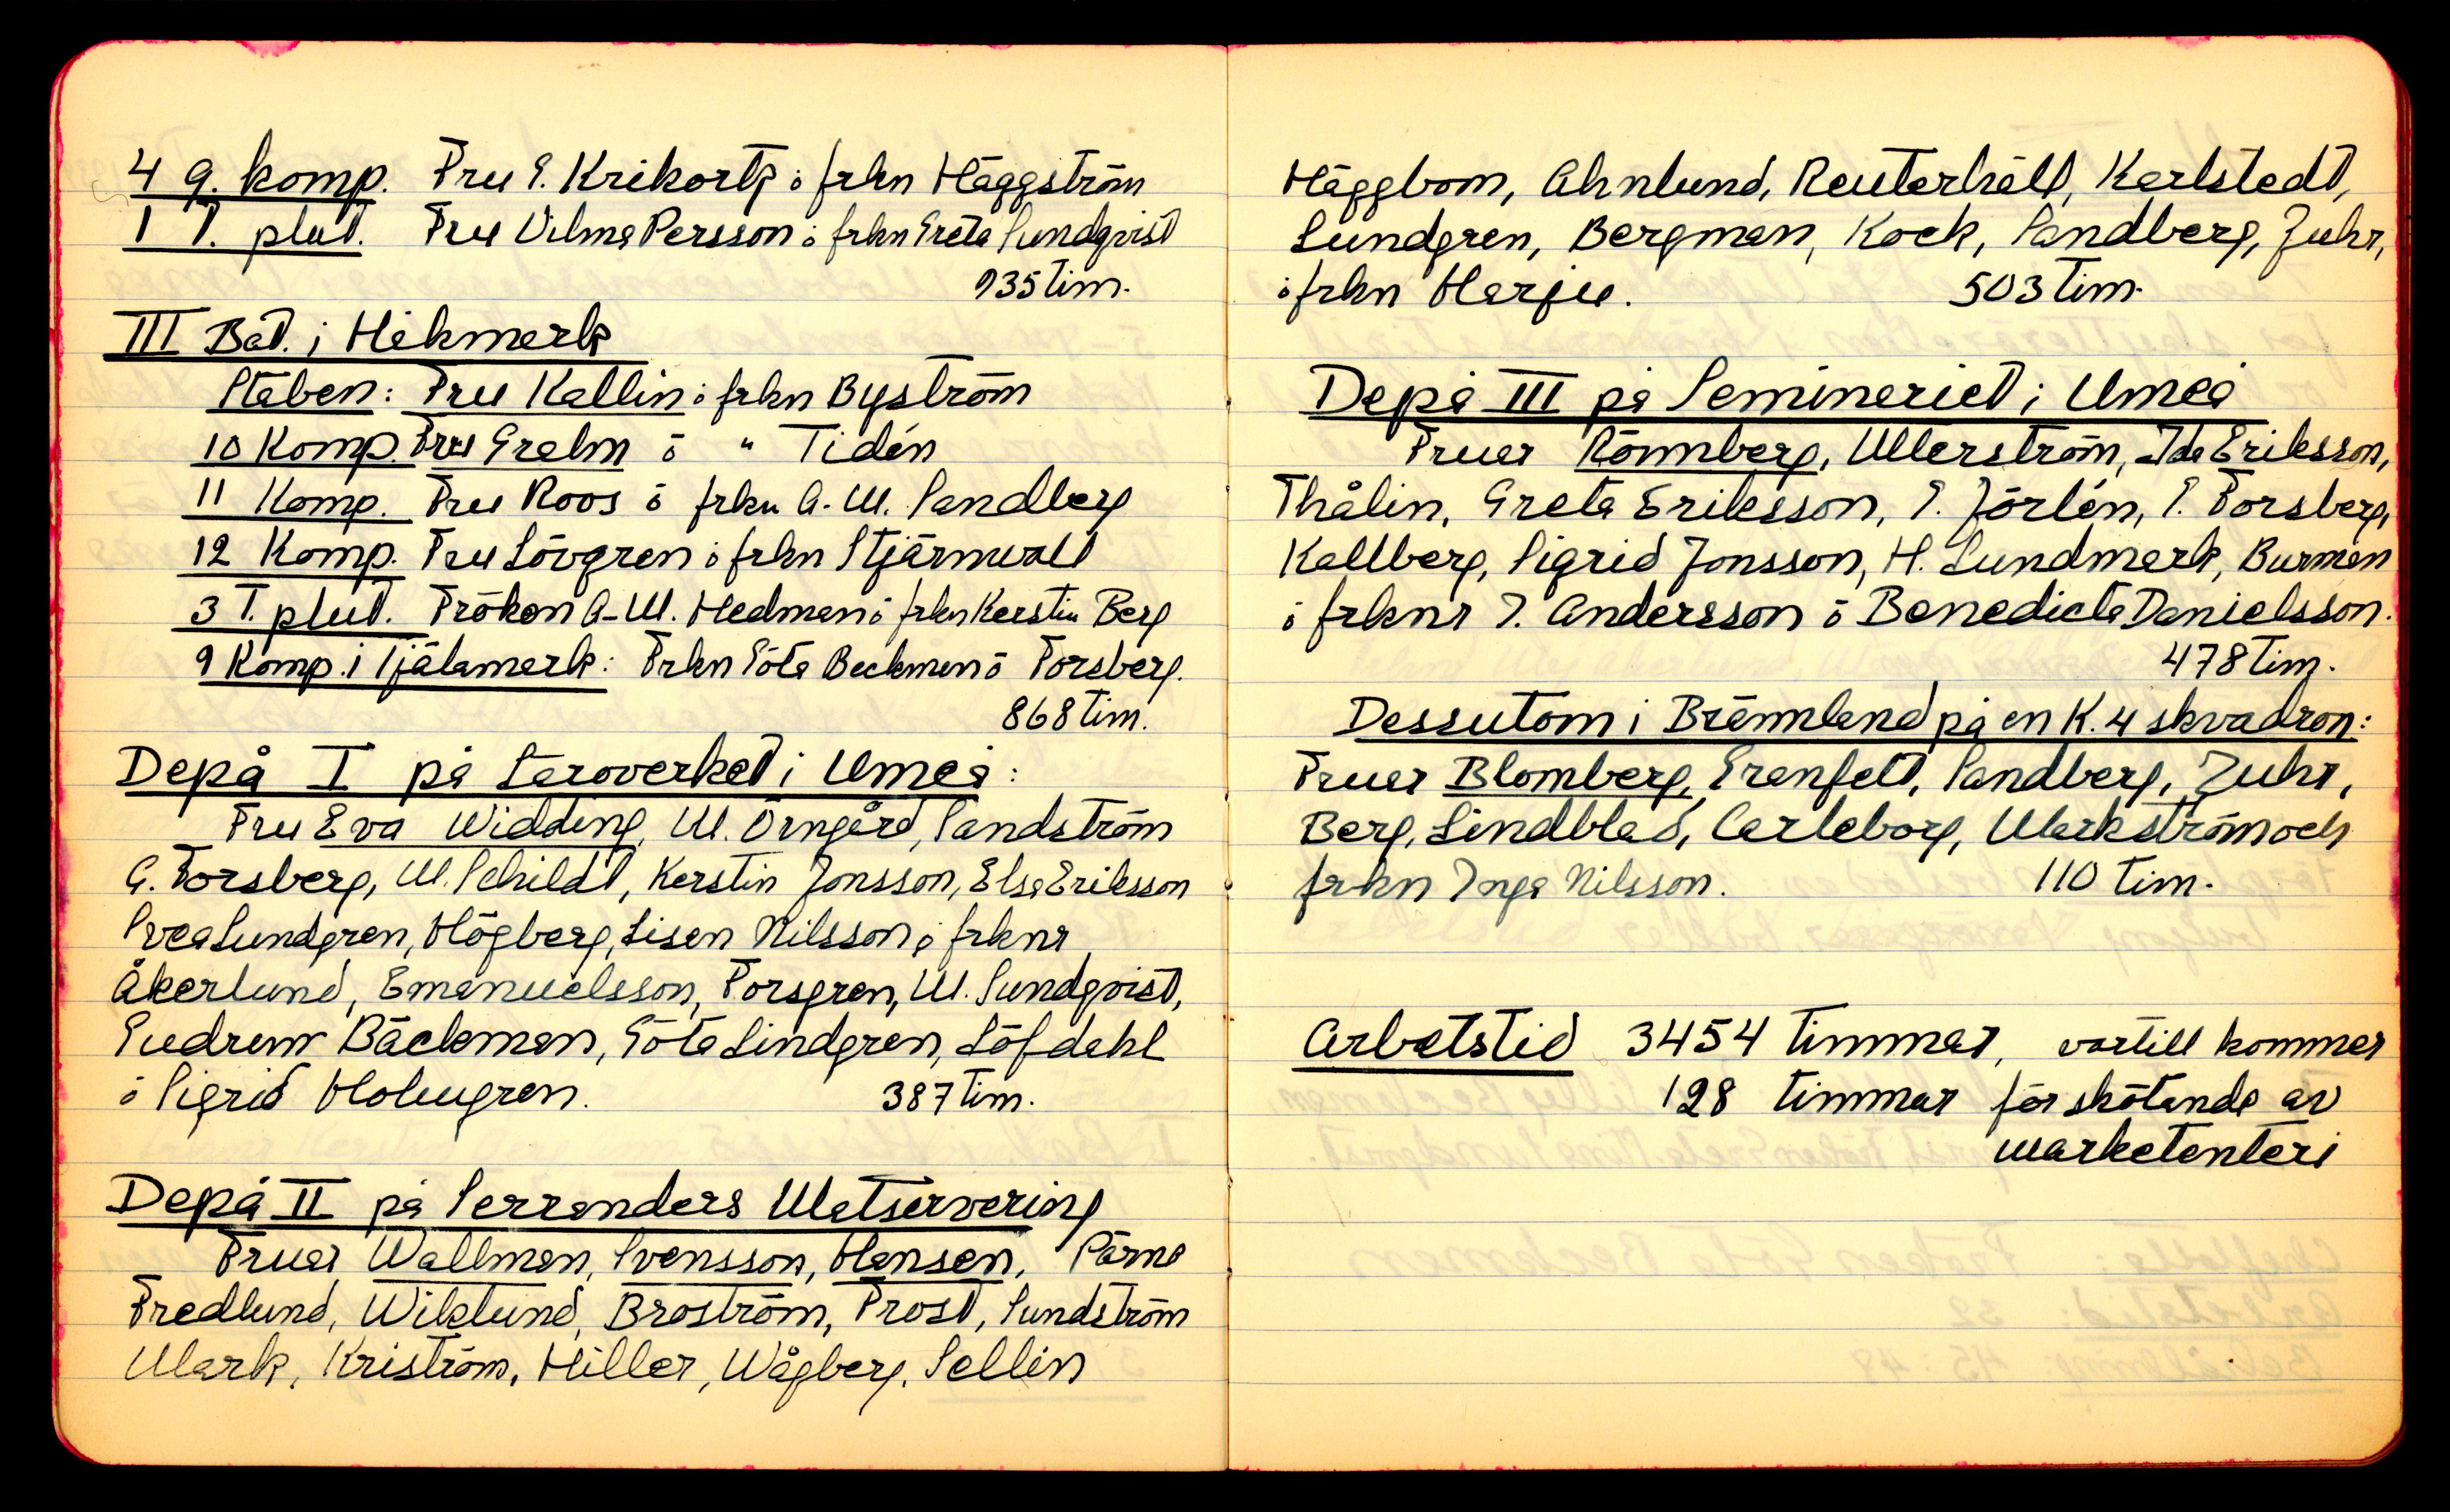 4 g. komp. Fru E. Krikortz o frkn Häggström
1 T. plut. Fru Vilma Persson o frkn Greta Sundqvist
935 tim.
III Bat. i Hökmark
Staben: Fru Kallin o frkn Byström
10 Komp. Fru Grahn o " Tidén
11 Komp. Fru Roos o frkn A-M. Sandberg
12 Komp. Fru Lövgren o frkn Stjärnwall
3 T. plut. Fröken A-M. Hedman o frkn Kerstin Berg
9 Komp. i Tjälamark: Frkn Göta Beckman o Forsberg.
868 tim.
Depå I på Läroverket i Umeå:
Fru Eva Widding, M. Örngård, Sandström
G. Forsberg, M. Schildt, Kerstin Jonsson, Elsa Eriksson
Svea Lundgren, Högberg, Lisen Nilsson o frknr
Åkerlund, Emanuelsson, Forsgren, M. Sundqvist,
Gudrun Bäckman, Göta Lindgren, Löfdahl
o Sigrid Holmgren. 387 tim.
Depå II på Serranders Matservering
Fruar Wallman, Svensson, Hansen, Pärne
Fredlund, Wiklund, Broström, Frost, Sundström
Mark, Kriström, Hiller, Wågberg, Sellin
Häggbom, Ahnlund, Reuterhäll, Karlstedt,
Lundgren, Bergman, Kock, Sandberg, Zuhr,
o frkn Harju. 503 tim.
Depå III på Seminariet i Umeå
Fruar Rönnberg, Ullerström, Ida Eriksson,
Thålin, Greta Eriksson, E. Jörlén, E. Forsberg,
Kallberg, Sigrid Jonsson, H. Lundmark, Burman
o frknr I. Andersson o Benedicta Danielsson.
478 tim.
Dessutom i Brännland på en K.4 skvadron:
Fruar Blomberg, Granfelt, Sandberg, Zuhr,
Berg, Lindblad, Carleborg, Markström och
frkn Inga Nilsson. 110 tim.
Arbetstid 3454 timmar, vartill kommer
128 timmar för skötande av
marketenteri